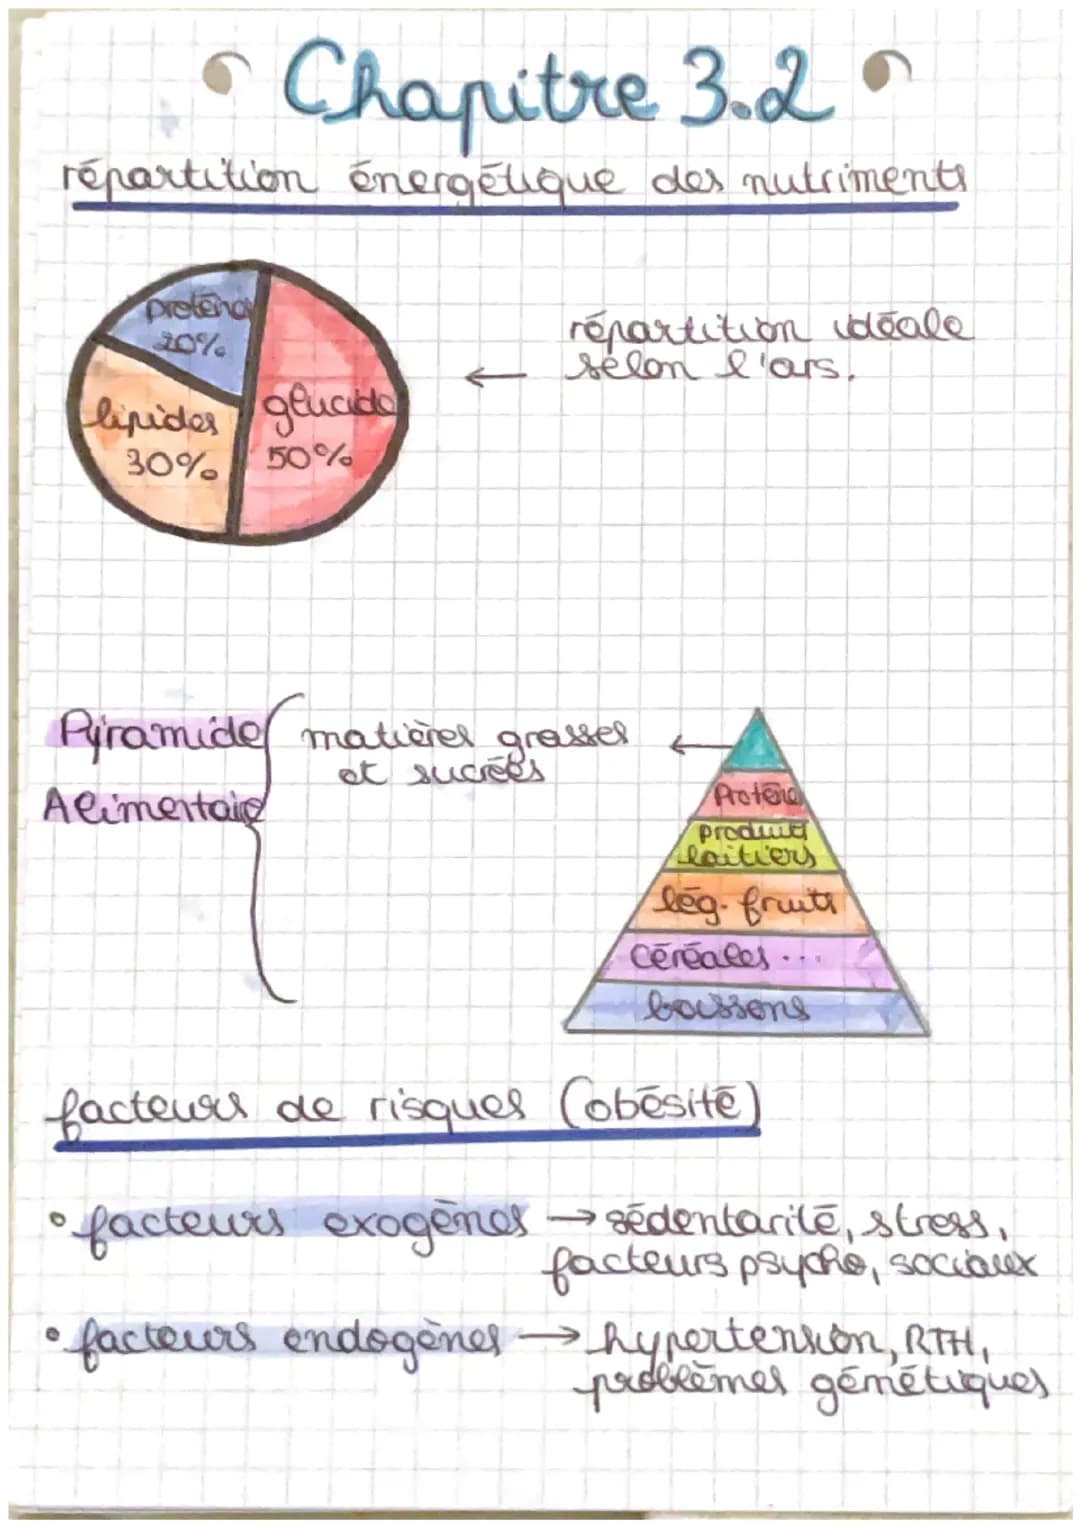 Chapitre 3.2
répartition énergétique des nutriments
protéines
20%
lipides
30%
glucide
50%
répartition idéale
selon l'ars.
Pyramide
Alimentaire
matières grasses
et sucrées
Protéine
produits
laitiers
lég. fruits
Céréales ...
boissons
facteurs de risques (obésité)
• facteurs exogènes → sédentarité, stress,
facteurs psycho, sociaux
• facteurs endogènes → hypertension, RTH,
problèmes génétiques